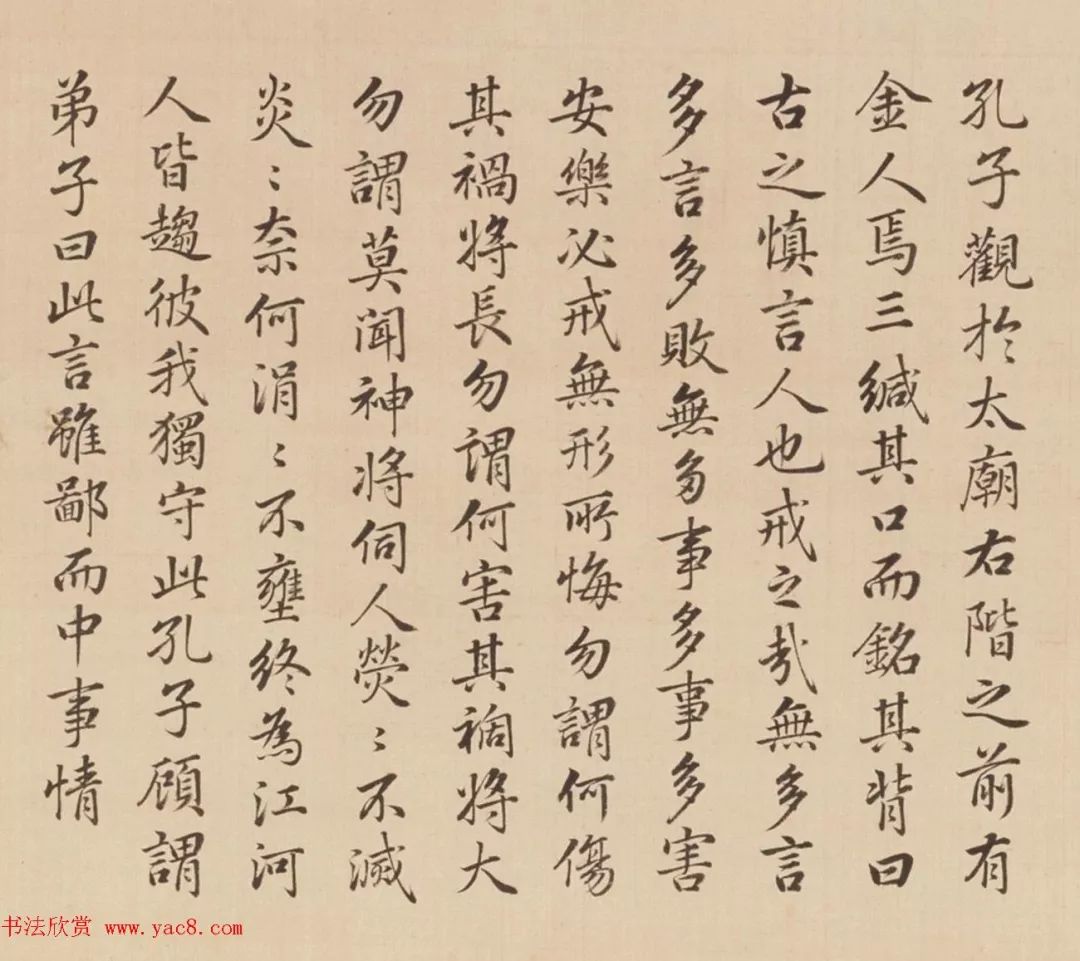 孔子觀於太廟右階之前有
金人焉三緘其口而銘其背曰
古之慎言人也戒之哉無多言
多言多敗無多事多事多害
安樂必戒無形所悔勿謂何傷
其禍將長勿謂何害其禍將大
勿謂莫聞神將伺人熒〻不滅
炎〻奈何涓〻不壅終為江河
人皆趨彼我獨守此孔子顧謂
弟子曰此言雖鄙而中事情
书法欣赏 www.yac8.com